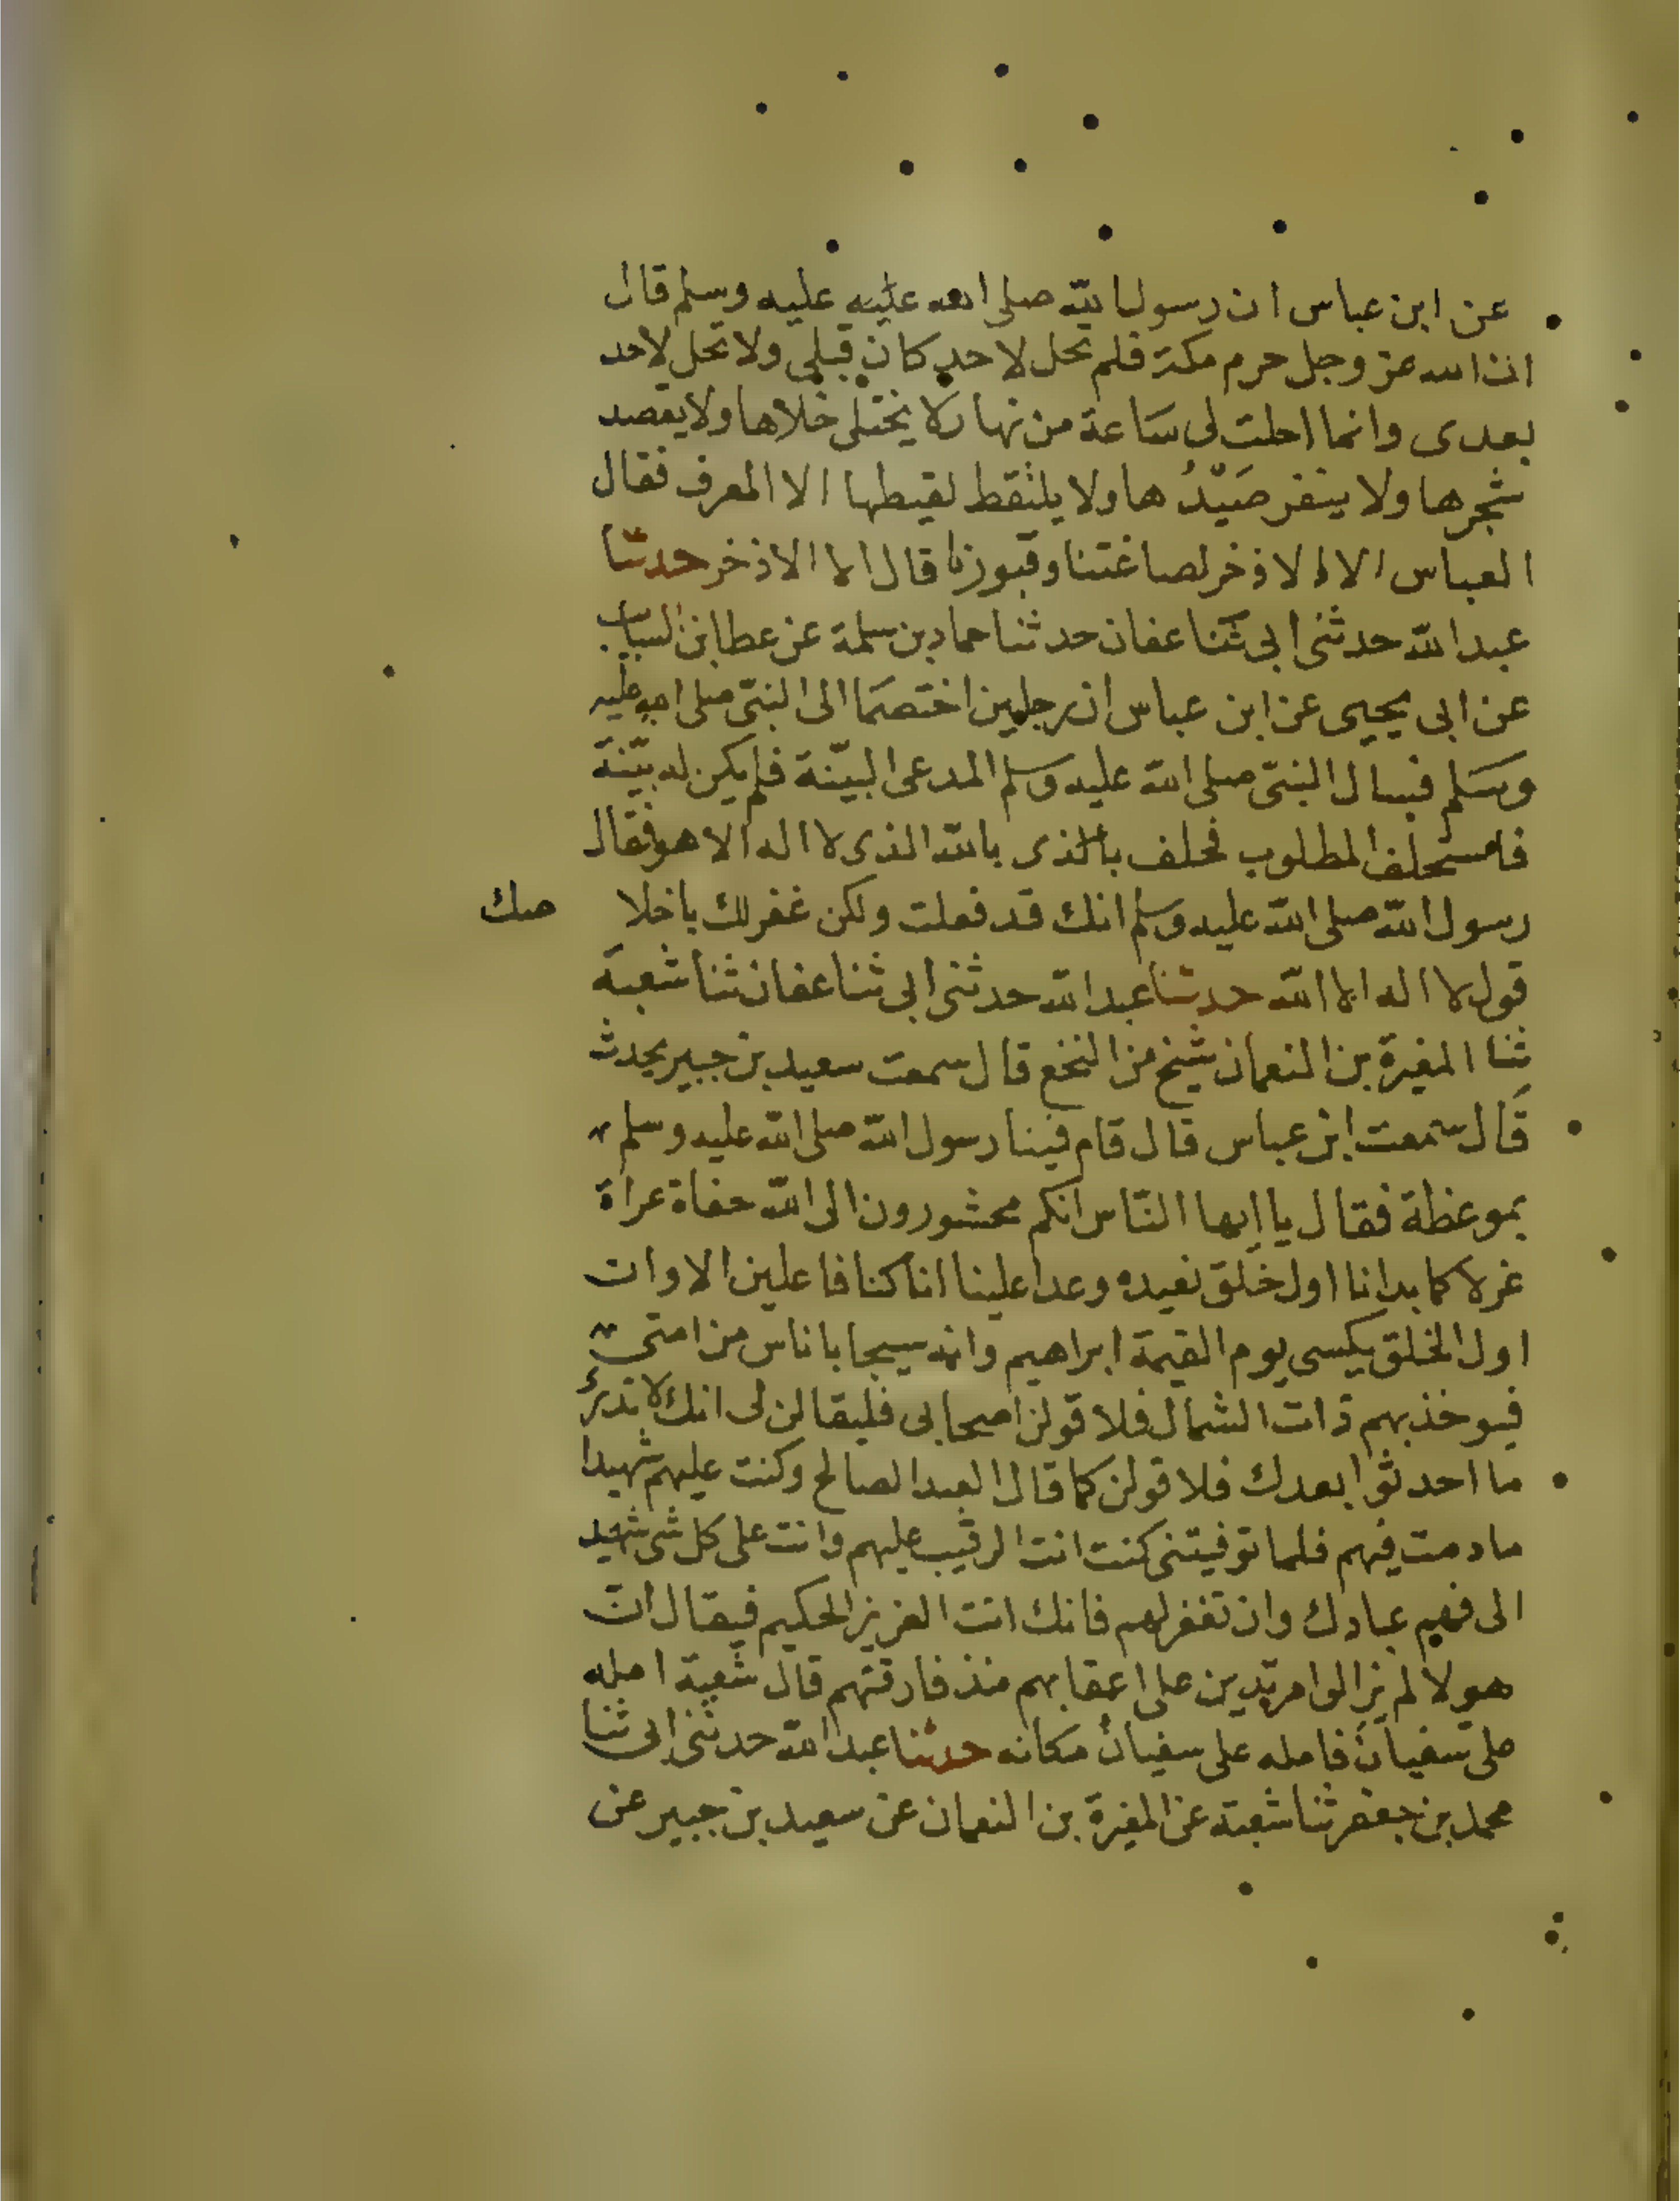 عن ابن عباس ان رسول الله صلى الله عليه عليه وسلم قال
ان الله عز وجل حرم مكة فلم تحل لاحد كان قبلي ولا تحل لاحد
بعدى وانما احلت لى ساعة من نهار لا يختلى خلاها ولا يعضد
شجرها ولا ينفر صَيْدُ ها ولا يلتقط لقيطها الا المعرف فقال
العباس الا الاذخر لصاغتنا وقبورنا قال الا الاذخر حدثنا
عبد الله حدثنى ابى ثنا عفان حدثنا حماد بن سلمة عن عطا بن السايب
عن ابى يحيى عن ابن عباس ان رجلين اختصما الى النبى صلى الله عليه
وسلم فسال النبى صلى الله عليه وسلم المدعى البيّنة فلم يكن له بيّنة
فاستحلف المطلوب فحلف بالذى بالله الذى لا اله الا هو فقال
رسول الله صلى الله عليه وسلم انك قد فعلت ولكن غفر لك باخلا صك
قول لا اله الا الله حدثنا عبد الله حدثنى ابى ثنا عفان ثنا شعبة
ثنا المغيرة بن النعمان شيخ من النخع قال سمعت سعيد بن جبير يحدث
قال سمعت ابن عباس قال قام فينا رسول الله صلى الله عليه وسلم
بموعظة فقال يا ايها النّاس انكم محشورون الى الله حفاة عراة
غرلا كما بدانا اول خلق نعيده وعدا علينا انا كنا فاعلين الا وان
اول الخلق يكسى يوم القيمة ابراهيم وانه سيجا باناس من امتى
فيوخذ بهم ذات الشمال فلا قولن اصحابى فليقالن لى انك لا تدرى
ما احدثوا بعدك فلا قولن كما قال العبد الصالح وكنت عليهم شهيدا
ما دمت فيهم فلما توفيتنى كنت انت الرقيب عليهم وانت على كل شى شهيد
الى فهم عبادك وان تغفر لهم فانك انت العزيز الحكيم فيقال ان
هولا لم يزالوا مرتدين على اعقابهم منذ فارقتهم قال شعبة امله
على سفيان فامله على سفيان مكانه حدثنا عبد الله حدثنى ابى ثنا
محمد بن جعفر ثنا شعبة عن المغيرة بن النعمان عن سعيد بن جبير عن